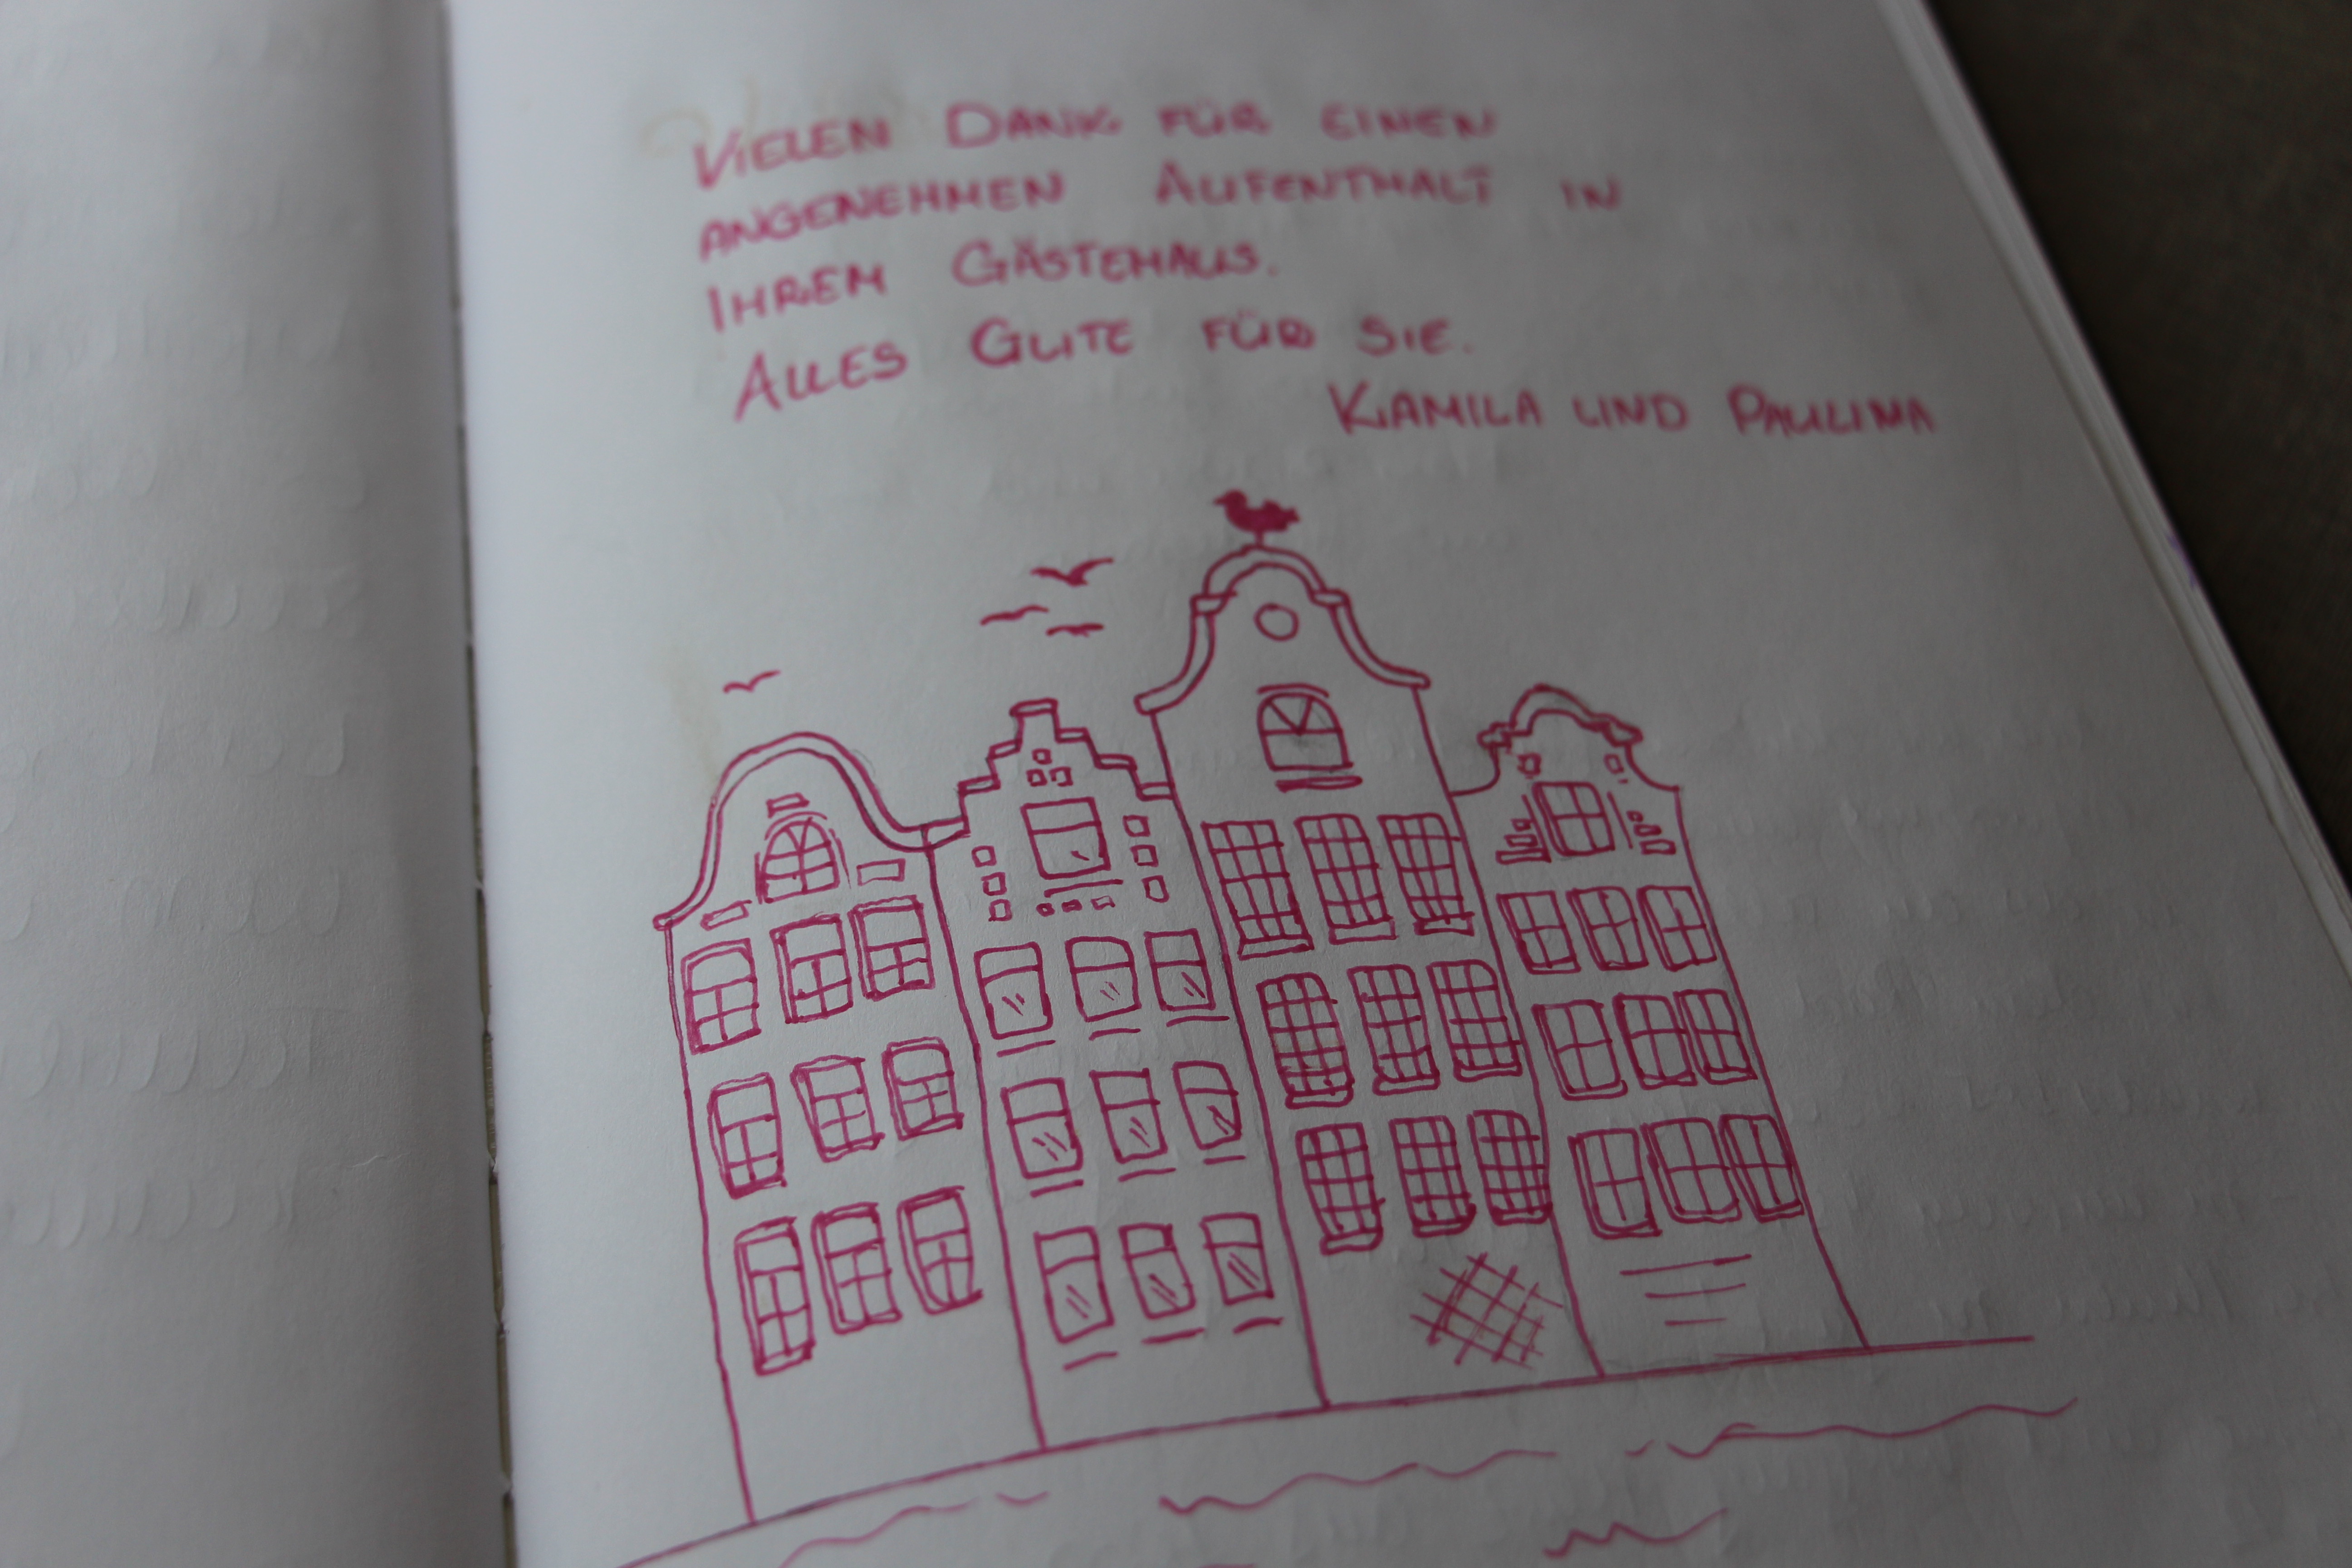 VIELEN DANK FÜR EINEN
ANGENEHMEN AUFENTHALT IN
IHREM GÄSTEHAUS.
ALLES GUTE FÜR SIE.
KAMILA UND PAULINA